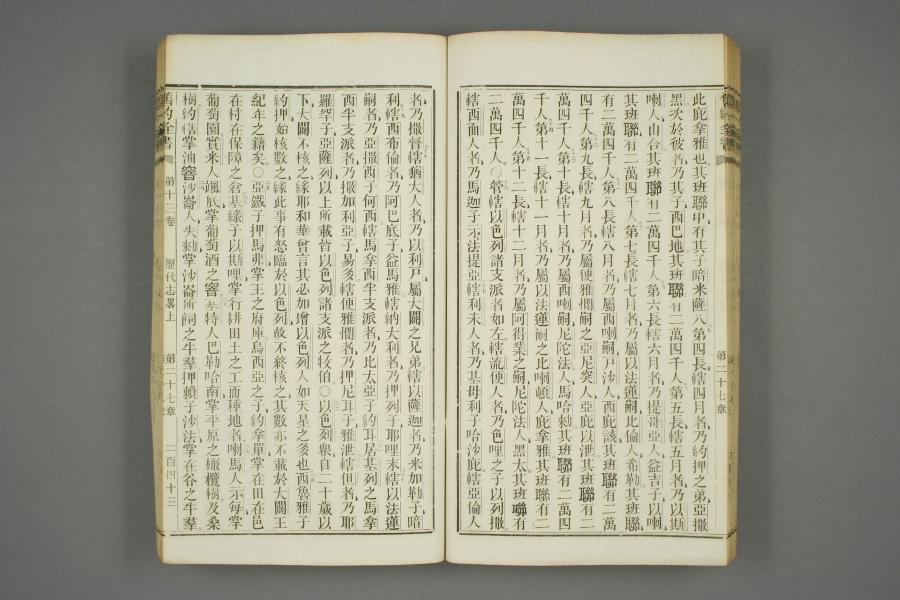 此庇拿雅也其班聯中有其子暗米薩八第四長轄四月者乃約押之弟亞撒
黑次於彼者乃其子西巴地其班聯有二萬四千人第五長轄五月者乃以斯
喇人山合其班聯有二萬四千人第六長轄六月者乃提哥亞人益吉子以喇
其班聯有二萬四千人第七長轄七月者乃屬以法蓮嗣比倫人希勒其班聯
有二萬四千人第八長轄八月者乃屬西喇嗣戶沙人西庇該其班聯有二萬
四千人第九長轄九月者乃屬便雅憫嗣之亞尼突人亞庇以泄其班聯有二
萬四千人第十長轄十月者乃屬西喇嗣尼陀法人馬哈勑其班聯有二萬四
千人第十一長轄十一月者乃屬以法蓮嗣之比喇頓人庇拿雅其班聯有二
萬四千人第十二長轄十二月者乃屬阿得業之嗣尼陀法人黑太其班聯有
二萬四千人○管轄以色列諸支派者如左轄流便人者乃色哩之子以列撒
轄西面人者乃馬迦子示法提亞轄利未人者乃基母利子哈沙庇轄亞倫人
者乃撒督轄猶大人者乃以利戶屬大闢之兄弟轄以薩迦者乃米加勒子暗
利轄西布倫者乃阿巴底子益馬雅轄納大利者乃押列子耶哩末轄以法蓮
嗣者乃亞撒西子何西轄馬拿西半支派者乃比太亞子約耳居基列之馬拿
西半支派者乃撒加利亞子易多轄便雅憫者乃押尼耳子雅泄轄但者乃耶
羅罕子亞薩列以上所載皆以色列諸支派之牧伯○以色列衆自二十歲以
下大闢不核之緣耶和華曾言其必加增以色列人如天星之多也西魯雅子
約押始核數之緣此事有怒臨於以色列故不終核之其數亦不載於大闢王
紀年之籍矣○亞鐵子押馬弗掌王之府庫烏西亞之子約拿單掌在田在邑
在村在保障之倉基綠子以斯哩掌行耕田土之工而種地者喇馬人示每掌
葡萄園實米人颯底掌葡萄酒之窖基特人巴勒哈南掌平原之橄欖樹及桑
樹約轄掌油窖沙崙人失勑掌沙崙所飼之牛羣押賴子沙法掌在谷之牛羣
舊約全書
第十三卷
歷代志畧上
第二十七章
二百四十三
第二十七章